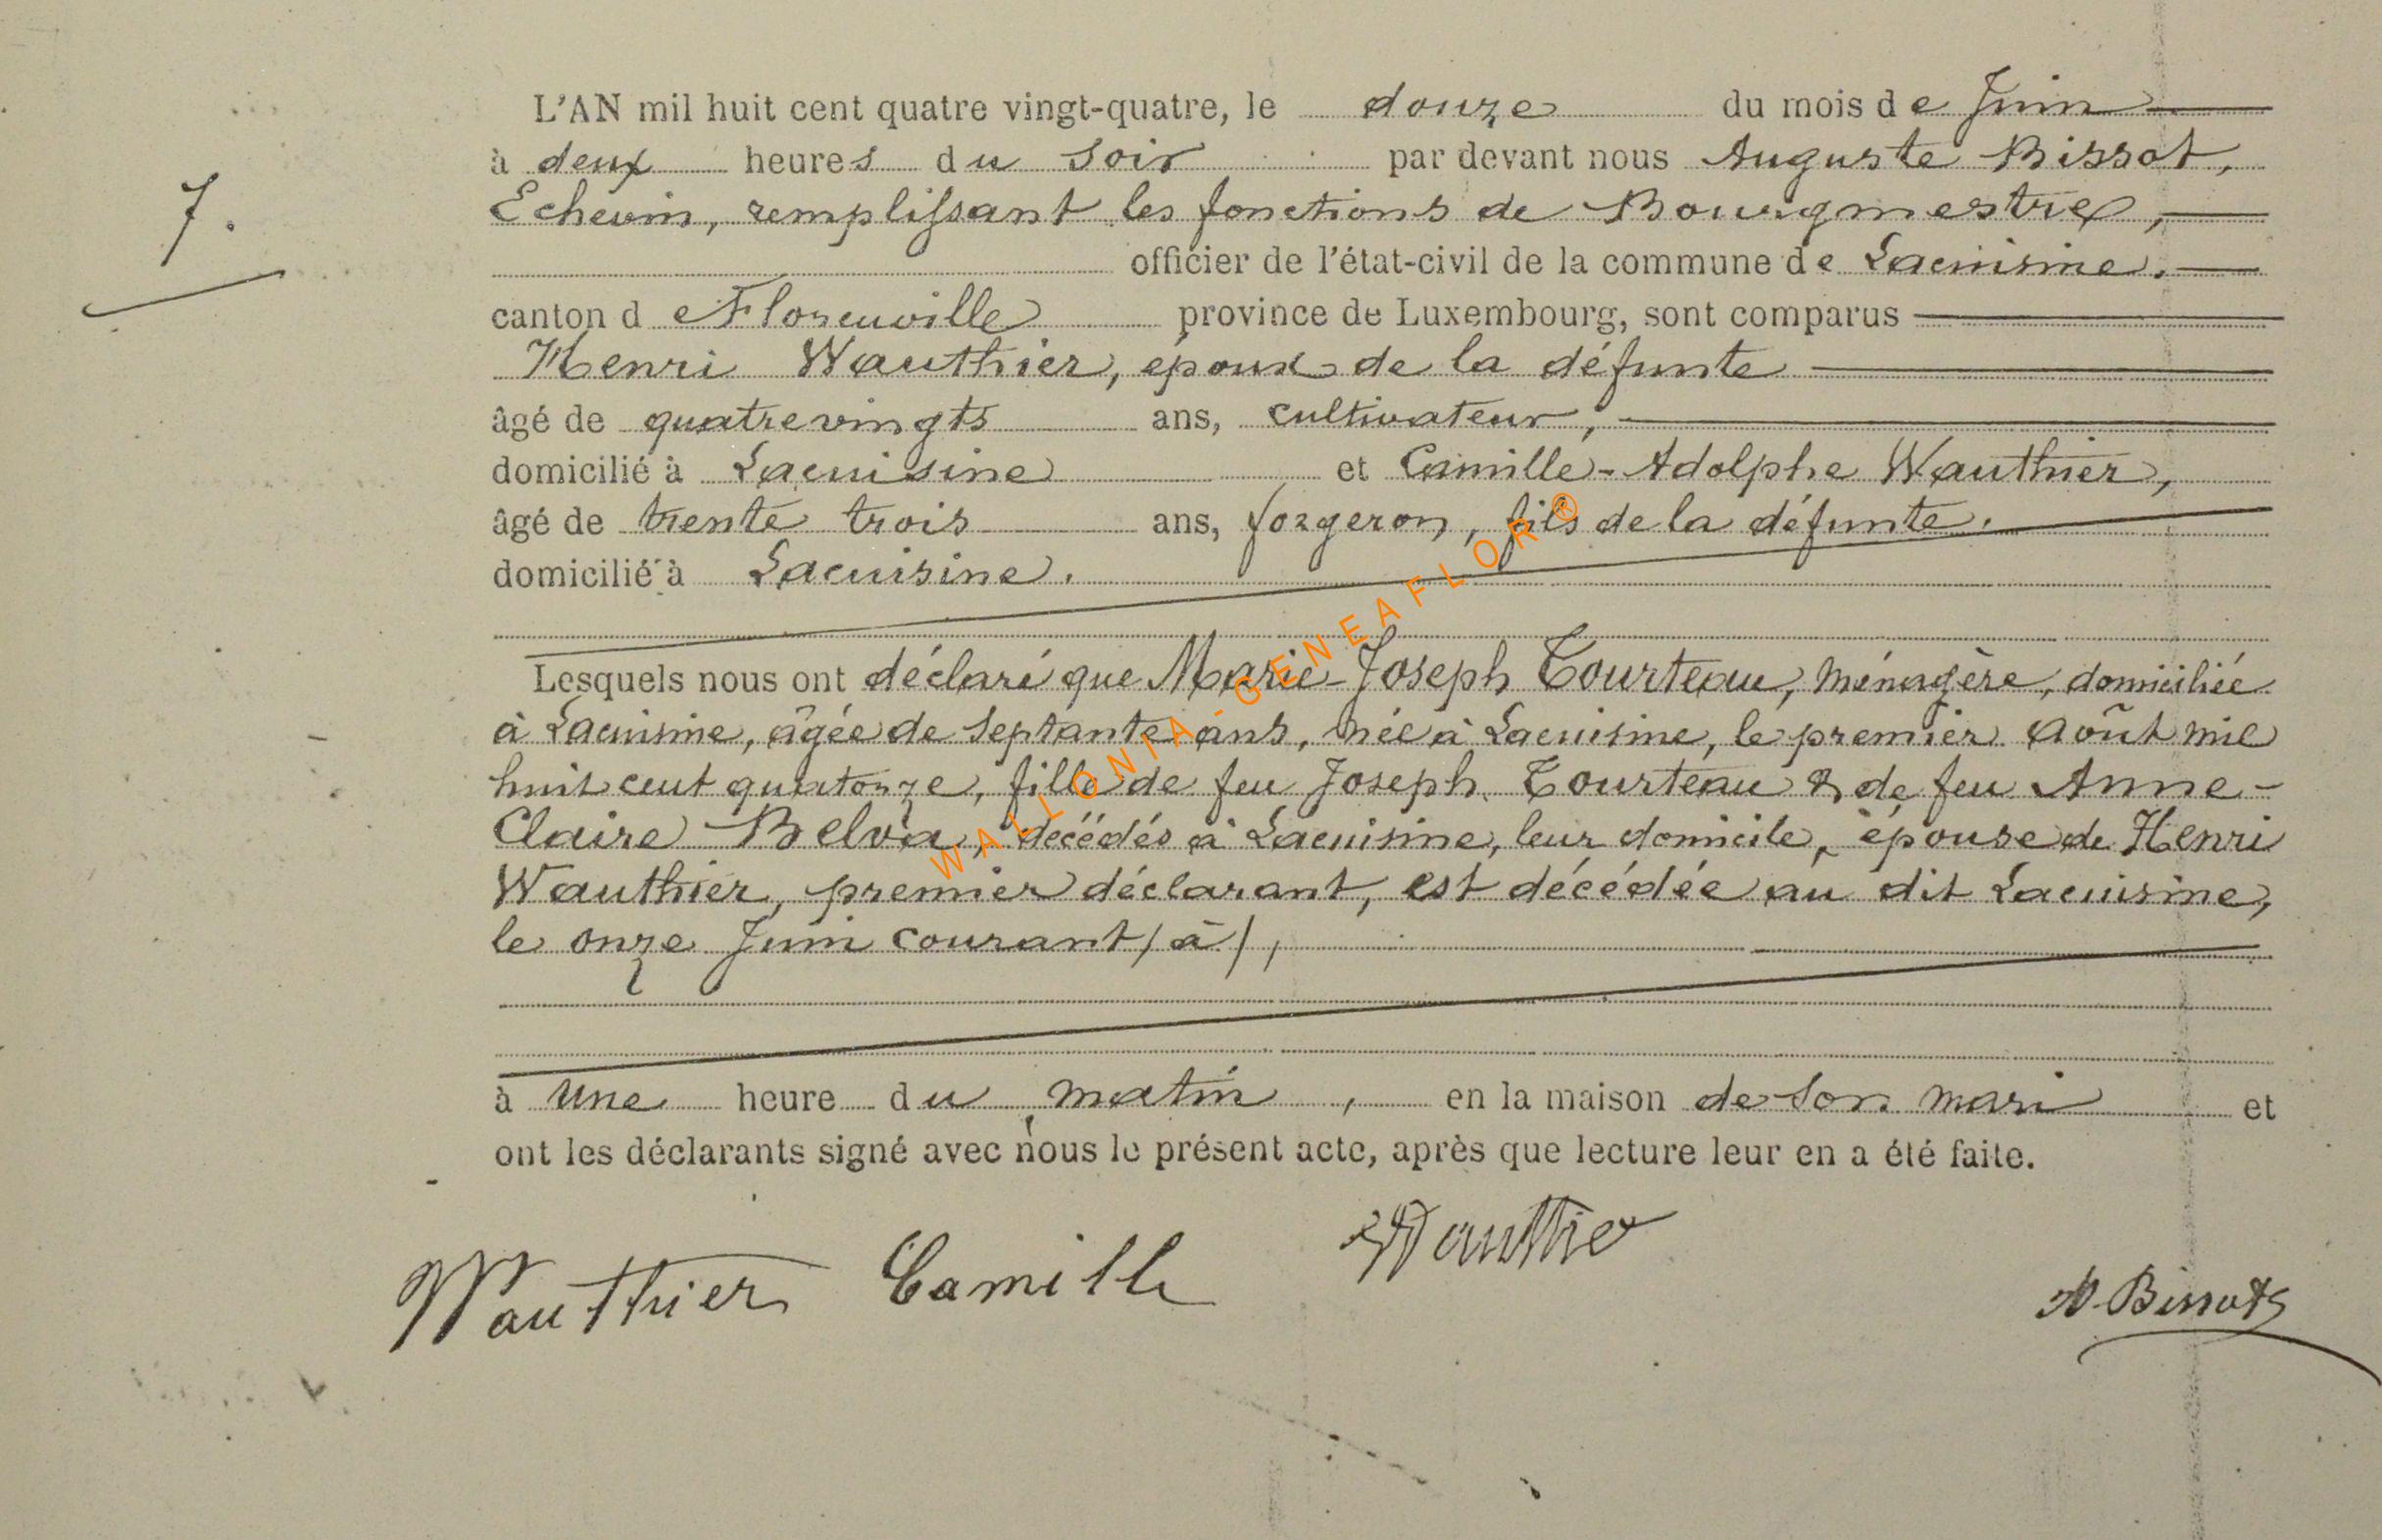 L'AN mil huit cent quatre vingt-quatre, le douze du mois de Juin
à deux heures du soir par devant nous Auguste Bissot,
7.
Echevin, remplissant les fonctions de Bourgmestre,
officier de l'état-civil de la commune de Lacuisine.
canton de Florenville province de Luxembourg, sont comparus
Henri Wauthier, époux de la défunte
âgé de quatrevingts ans, cultivateur,
domicilié à Lacuisine et Camille-Adolphe Wauthier,
âgé de trente trois ans, forgeron, fils de la défunte.
domicilié à Lacuisine.
Lesquels nous ont déclaré que Marie-Joseph Tourteau, ménagère, domiciliée
à Lacuisine, âgée de septante ans, née à Lacuisine, le premier Août mil
huit cent quatorze, fille de feu Joseph Tourteau & de feu Anne-
Claire Belva, décédés à Lacuisine, leur domicile, épouse de Henri
Wauthier, premier déclarant, est décédée au dit Lacuisine,
le onze Juin courant (à),
à une heure du matin, en la maison de son mari et
ont les déclarants signé avec nous le présent acte, après que lecture leur en a été faite.
Wauthier Camille Wauthier
A. Bissot
WALLONIA-GENEAFLOR®